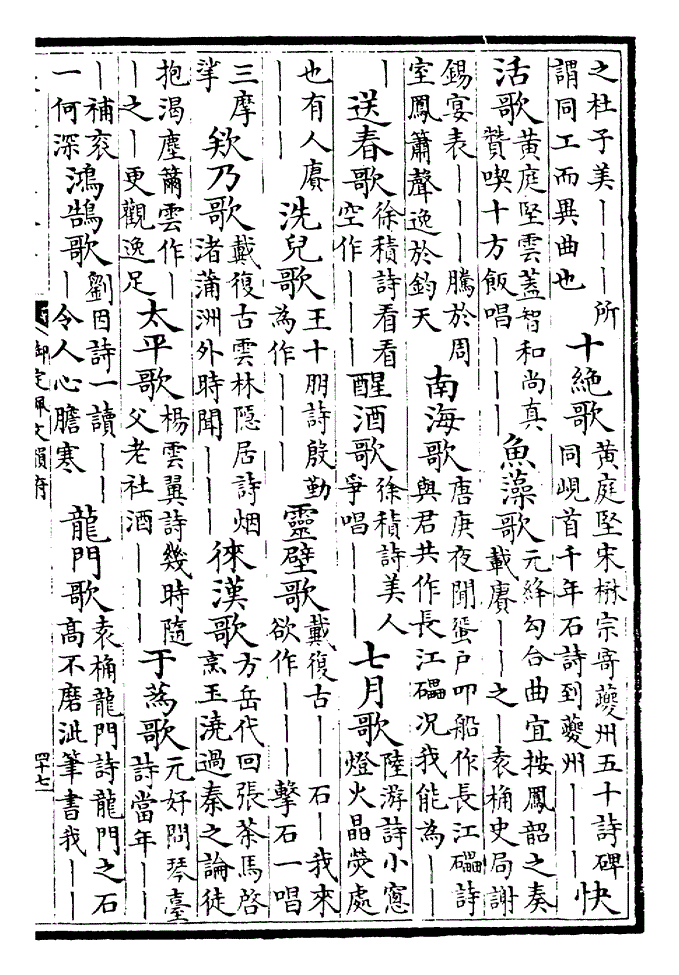 之杜子美｜｜｜所
謂同工而異曲也
十絶歌
黄庭堅宋楙宗寄夔州五十詩碑
同峴首千年石詩到夔州｜｜｜
快
活歌
黄庭堅雲蓋智和尚真
贊喫十方飯唱｜｜｜
魚藻歌
元絳勾合曲宜按鳳韶之奏
載賡｜｜之｜袁桷史局謝
錫宴表｜｜｜騰於周
室鳳簫聲逸於鈞天
南海歌
唐庚夜聞蜑户叩船作長江礧詩
與君共作長江礧況我能為｜
｜
送春歌
徐積詩看看
空作｜｜｜
醒酒歌
徐積詩美人
爭唱｜｜｜
七月歌
陸游詩小窓
燈火晶熒處
也有人賡
｜｜｜
洗兒歌
王十朋詩殷勤
為作｜｜｜
靈壁歌
戴復古｜｜石｜我來
欲作｜｜｜｜擊石一唱
三摩
挲
欸乃歌
戴復古雲林隠居詩烟
渚蒲洲外時聞｜｜｜
徠漢歌
方岳代回張荼馬啓
烹玉澆過秦之論徒
抱渴塵簫雲作｜
｜之｜更觀逸足
太平歌
楊雲翼詩幾時隨
父老社酒｜｜｜
于蔿歌
元好問琴臺
詩當年｜｜
｜補衮
一何深
鴻鵠歌
劉因詩一讀｜｜
｜令人心膽寒
龍門歌
袁桷龍門詩龍門之石
高不磨泚筆書我｜｜
御定佩文韻府
四十七